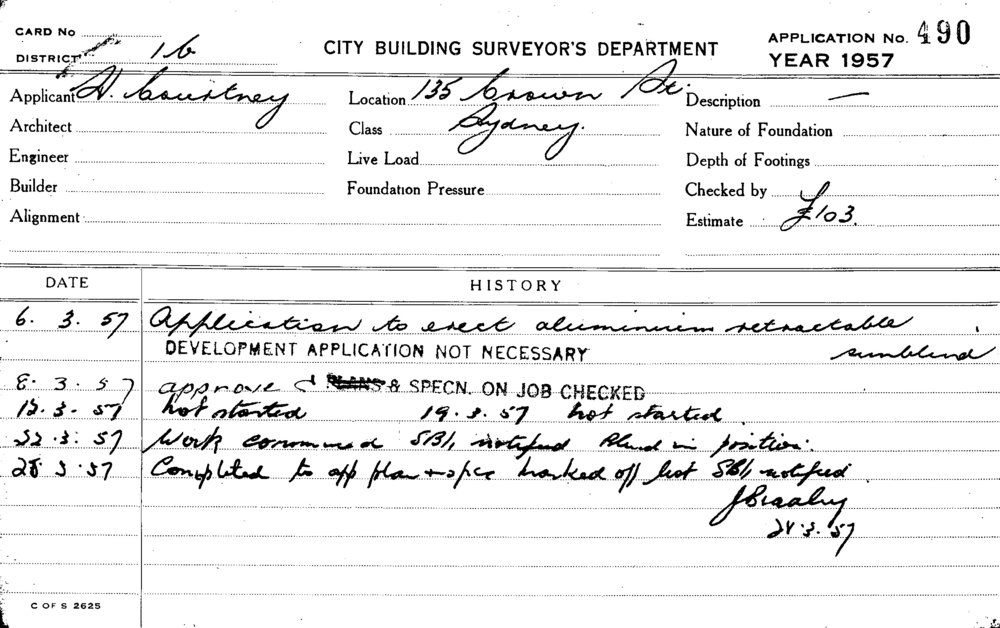 CARD No
DISTRICT 16
CITY BUILDING SURVEYOR'S DEPARTMENT
APPLICATION No. 490
YEAR 1957
Applicant H. Courtney
Location 135 Crown St.
Description —
Architect
Class Sydney.
Nature of Foundation
Engineer
Live Load
Depth of Footings
Builder
Foundation Pressure
Checked by
Alignment
Estimate £103.
DATE
HISTORY
6. 3. 57 Application to erect aluminium retractable
sunblind
DEVELOPMENT APPLICATION NOT NECESSARY
8. 3. 57 approve PLANS & SPECN. ON JOB CHECKED
12. 3. 57 not started 19. 3. 57 not started
22. 3. 57 Work commenced SBI, notified Blind in position.
28 3. 57 Completed to app plan + spec marked off list SBI, notified
28. 3. 57
C OF S 2625